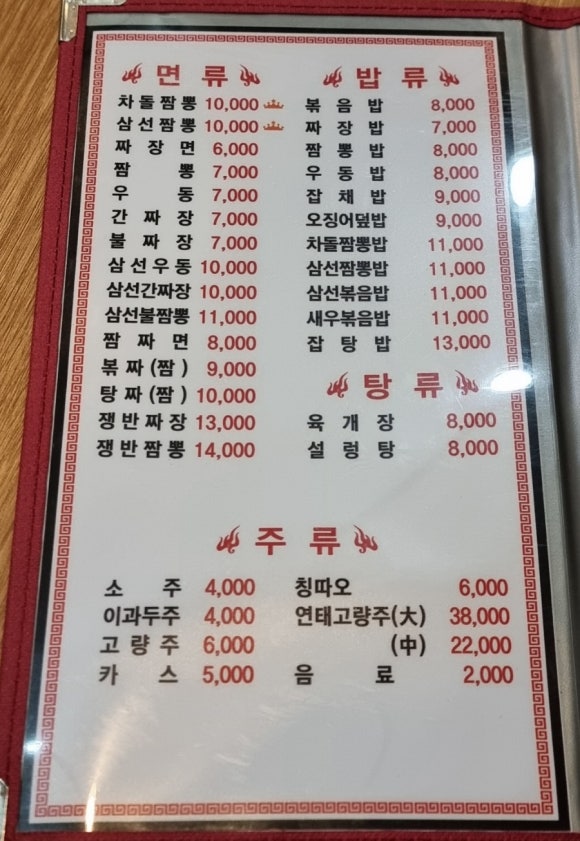 면 류
차돌짬뽕 10,000
삼선짬뽕 10,000
짜장면 6,000
짬뽕 7,000
우동 7,000
간짜장 7,000
불짜장 7,000
삼선우동 10,000
삼선간짜장 10,000
삼선불짬뽕 11,000
짬짜면 8,000
볶짜(짬) 9,000
탕짜(짬) 10,000
쟁반짜장 13,000
쟁반짬뽕 14,000
밥 류
볶음밥 8,000
짜장밥 7,000
짬뽕밥 8,000
우동밥 8,000
잡채밥 9,000
오징어덮밥 9,000
차돌짬뽕밥 11,000
삼선짬뽕밥 11,000
삼선볶음밥 11,000
새우볶음밥 11,000
잡탕밥 13,000
탕 류
육개장 8,000
설렁탕 8,000
주 류
소주 4,000
이과두주 4,000
고량주 6,000
카스 5,000
칭따오 6,000
연태고량주(大) 38,000
(中) 22,000
음료 2,000